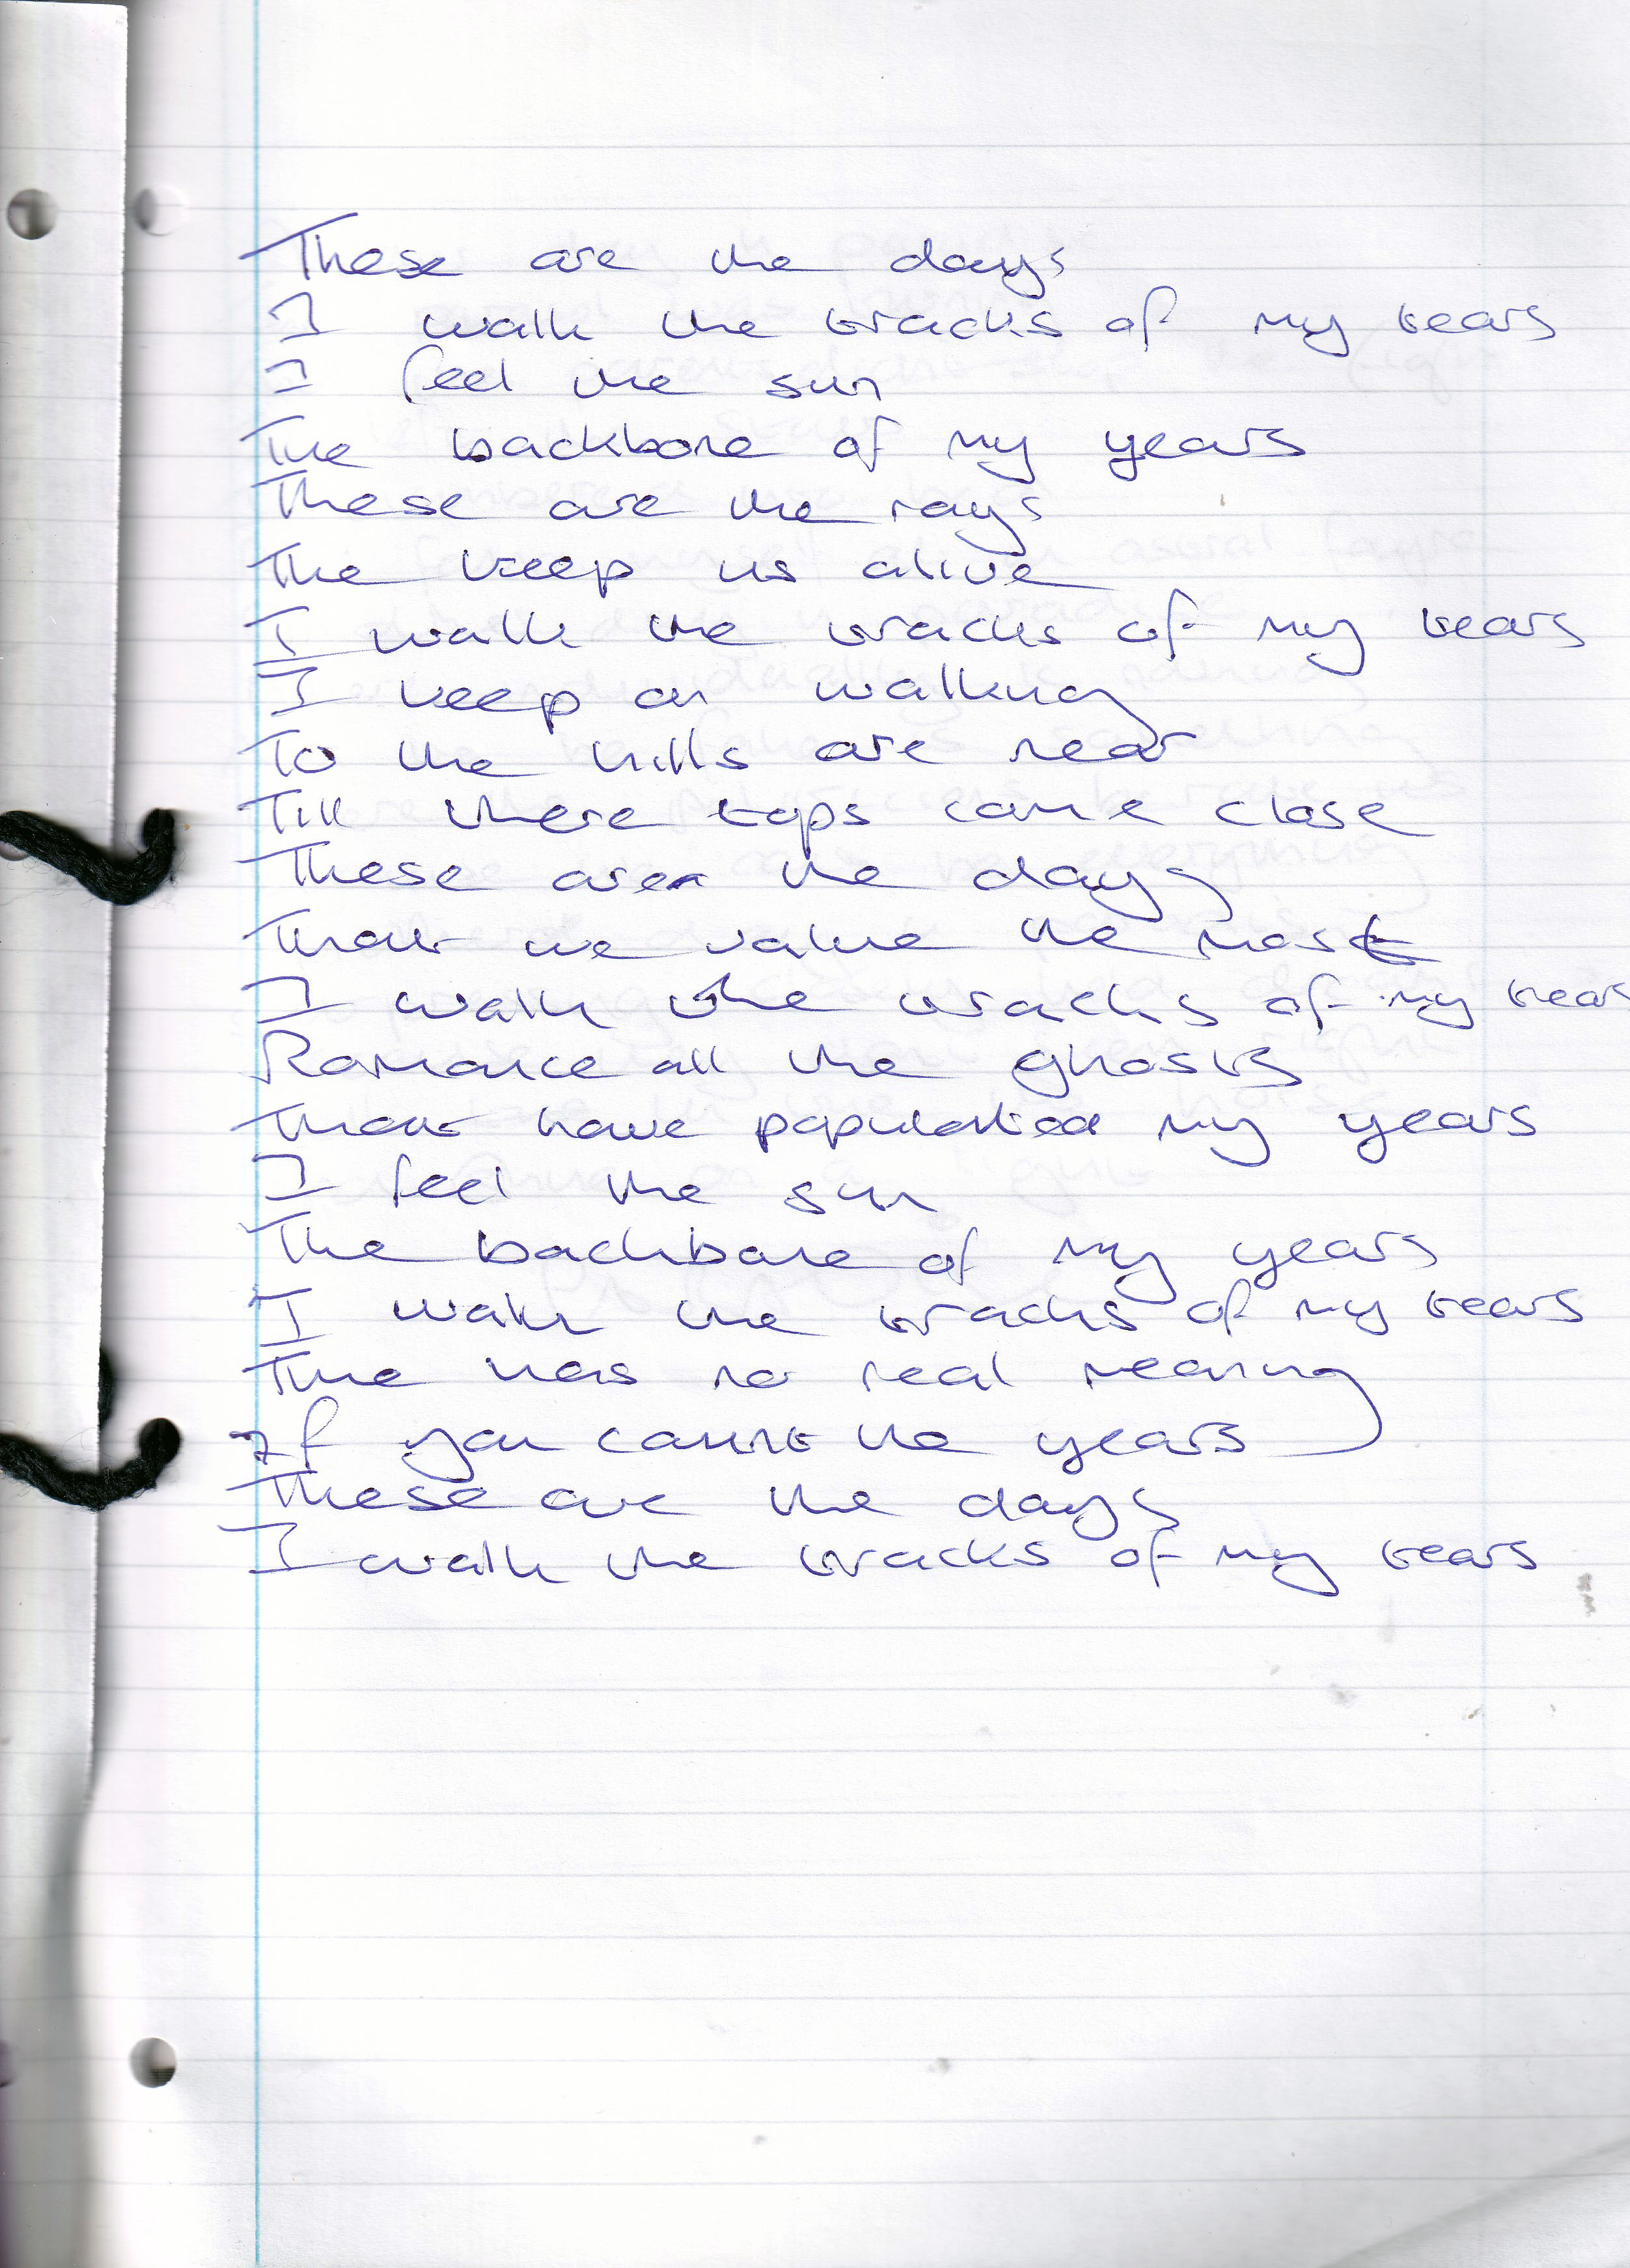 These are the days
I walk the tracks of my tears
I feel the sun
The backbone of my years
These are the rays
The keep us alive
I walk the tracks of my tears
I keep on walking
To the hills are near
Till there tops come close
These are the days
That we value the most
I walk the tracks of my tears
Romance all the ghosts
That have populated my years
I feel the sun
The backbone of my years
I walk the tracks of my tears
Time has no real meaning
If you count the years
These are the days
I walk the tracks of my tears